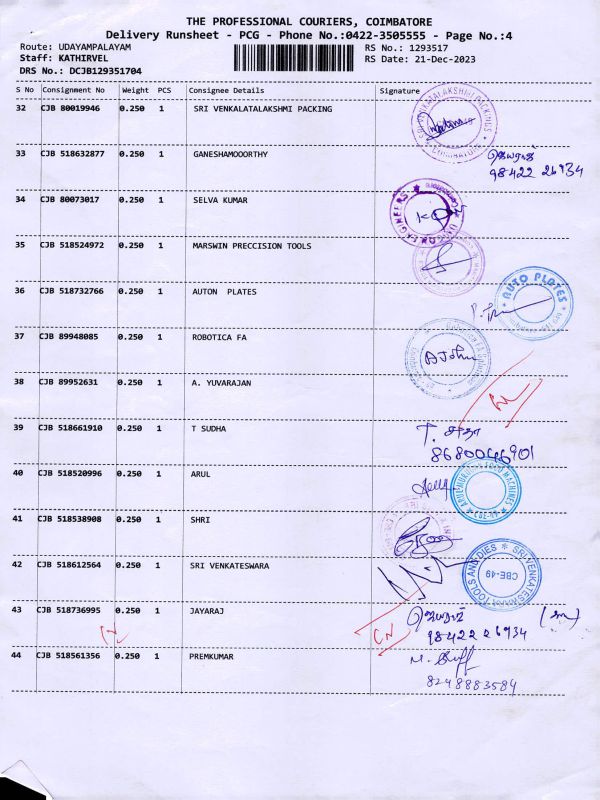 THE PROFESSIONAL COURIERS, COIMBATORE
Delivery Runsheet - PCG - Phone No.:0422-3505555 - Page No.:4
Route: UDAYAMPALAYAM
RS No.: 1293517
Staff: KATHIRVEL
RS Date: 21-Dec-2023
DRS No.: DCJB129351704
S No Consignment No Weight PCS Consignee Details Signature
32 CJB 80019946 0.250 1 SRI VENKALATALAKSHMI PACKING
33 CJB 518632877 0.250 1 GANESHAMOOORTHY
ஜெயராஜ்
98422 26934
34 CJB 80073017 0.250 1 SELVA KUMAR
ENGINEERS
35 CJB 518524972 0.250 1 MARSWIN PRECCISION TOOLS
36 CJB 518732766 0.250 1 AUTON PLATES
AUTO PLATES
37 CJB 89948085 0.250 1 ROBOTICA FA
A John
38 CJB 89952631 0.250 1 A. YUVARAJAN
39 CJB 518661910 0.250 1 T SUDHA T. சுதா
8680046901
40 CJB 518520996 0.250 1 ARUL
FOOD MACHINES
41 CJB 518538908 0.250 1 SHRI
42 CJB 518612564 0.250 1 SRI VENKATESWARA
SRI VENKATESWARA TOOLS AND DIES
CBE-49
43 CJB 518736995 0.250 1 JAYARAJ ஜெயராஜ்
CN 98422 26934
44 CJB 518561356 0.250 1 PREMKUMAR
8248883584